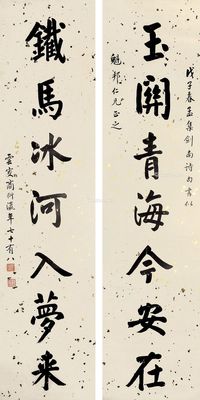 玉關青海今安在
戊子春孟集劍南詩句書似
魁邦仁兄正之
鐵馬冰河入夢來
雲亭商衍瀛年七十有八